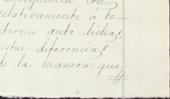 con
relativamente a to-
ante dichas
diferencias
de la manera que